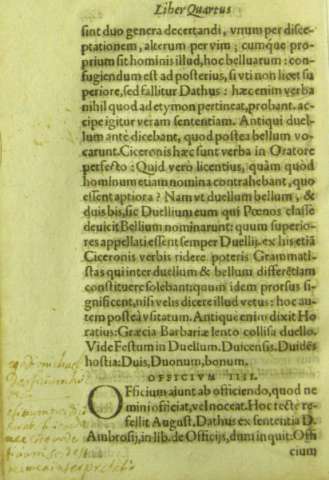 Liber Quartus
sint duo genera decertandi, vnum per disce-
ptationem, alterum per vim; cumque pro-
prium sit hominis illud, hoc belluarum: con-
fugiendum est ad posterius, si vti non licet su
periore, sed fallitur Dathus: hæc enim verba
nihil quod ad etymon pertineat, probant. ac-
cipe igitur veram sententiam. Antiqui duel-
lum ante dicebant, quod postea bellum vo-
carunt. Ciceronis hæc sunt verba in Oratore
perfecto: Quid vero licentius, quàm quod
hominum etiam nomina contrahebant, quo
essent aptiora? Nam vt duellum bellum, &
duis bis, sic Duellium eum qui Pœnos classe
deuicit Bellium nominarunt: quum superio-
res appellati essent semper Duellij. ex his etiã
Ciceronis verbis ridere poteris Grammati-
stas qui inter duellum & bellum differẽtiam
constituere solebant: quum idem prorsus si-
gnificent, nisi velis dicere illud vetus: hoc au-
tem posteà vsitatum. Antique enim dixit Ho
ratius: Græcia Barbariæ lento collisa duello.
Vide Festum in Duellum. Duicensis. Duidẽs
hostia: Duis, Duonum, bonum.
OFFICIVM IIII.
OFficium aiunt ab officiendo, quod ne
mini officiat, vel noceat. Hoc recte re-
fellit August. Dathus ex sententia D.
Ambrosij, in lib. de Officijs, dum inquit: Offi
cium